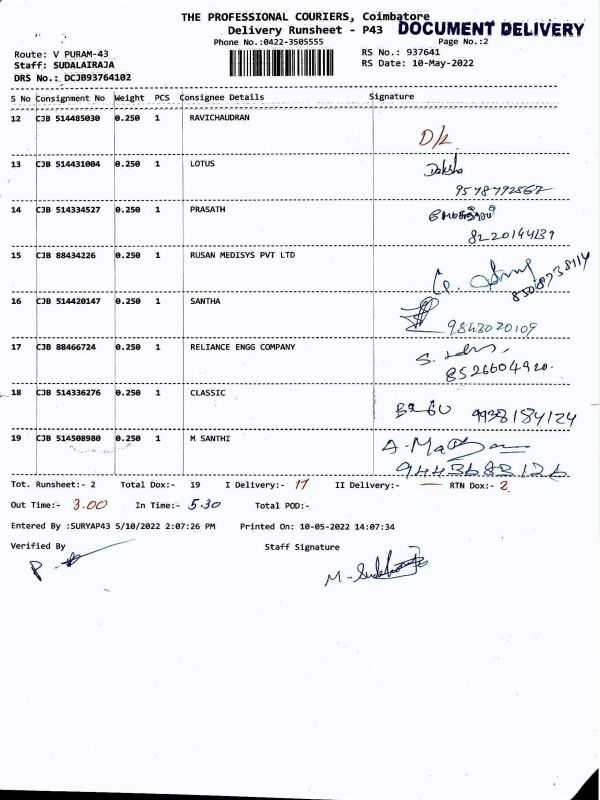 THE PROFESSIONAL COURIERS, Coimbatore
DOCUMENT DELIVERY
Delivery Runsheet - P43
Phone No.:0422-3505555
Page No.:2
Route: V PURAM-43
RS No.: 937641
Staff: SUDALAIRAJA
RS Date: 10-May-2022
DRS No.: DCJB93764102
S No Consignment No Weight PCS Consignee Details Signature
12 CJB 514485030 0.250 1 RAVICHAUDRAN
D/L
13 CJB 514431004 0.250 1 LOTUS
Daksha
9578792867
14 CJB 514334527 0.250 1 PRASATH
8220144139
15 CJB 88434226 0.250 1 RUSAN MEDISYS PVT LTD
16 CJB 514420147 0.250 1 SANTHA
9843020109
17 CJB 88466724 0.250 1 RELIANCE ENGG COMPANY
8526604920.
18 CJB 514336276 0.250 1 CLASSIC
9938184124
19 CJB 514508980 0.250 1 M SANTHI
Tot. Runsheet:- 2 Total Dox:- 19 I Delivery:- 17 II Delivery:- — RTN Dox:- 2
Out Time:- 3.00 In Time:- 5.30 Total POD:-
Entered By :SURYAP43 5/10/2022 2:07:26 PM Printed On: 10-05-2022 14:07:34
Verified By Staff Signature